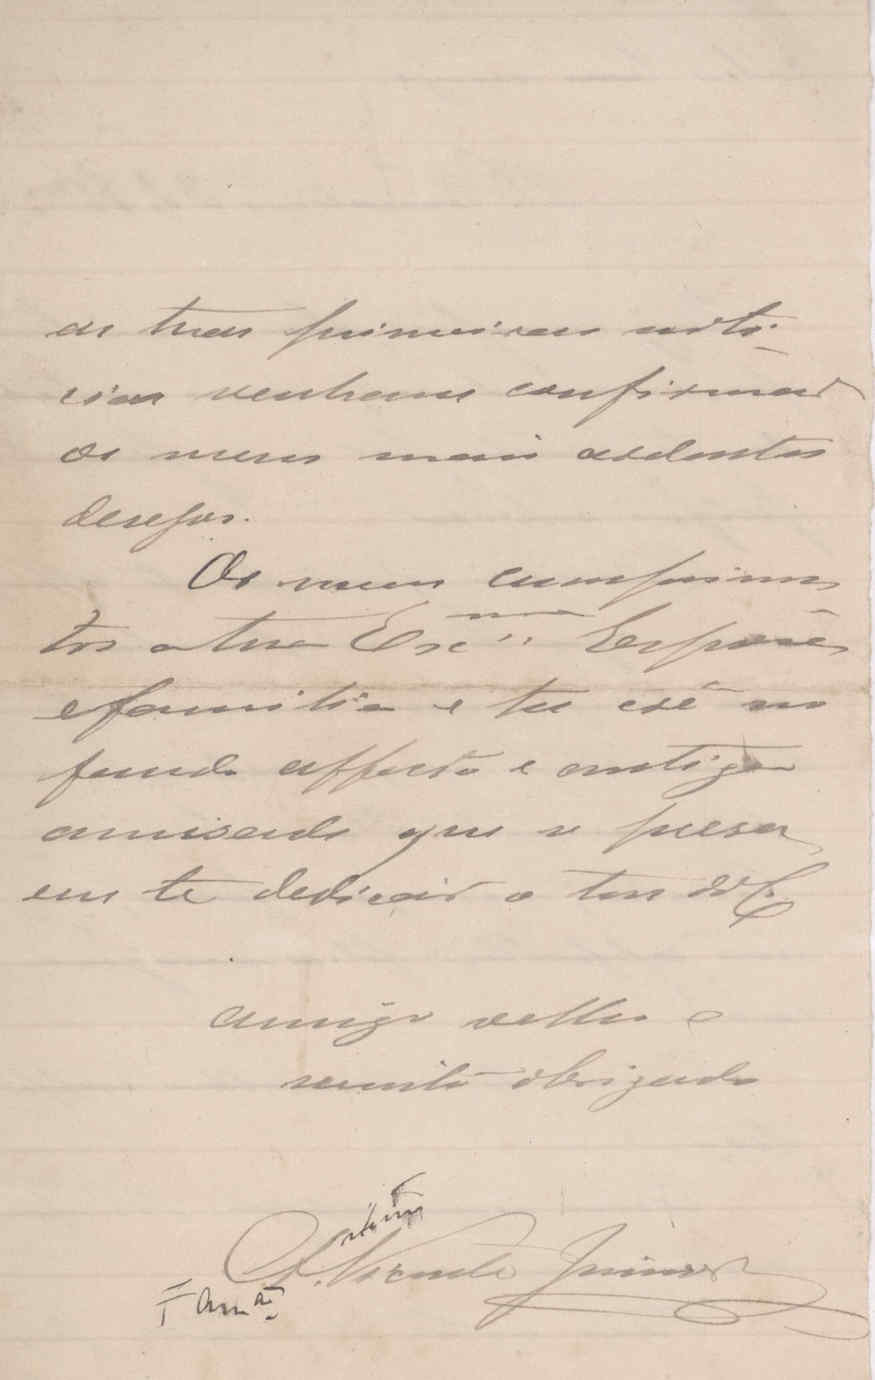 as tuas primeiras noti-
cias venham confirmar
os meus mais ardentes
desejos.
Os meus cumprimen
tos a tua Exᵐᵃ Esposa
e familia e tu crê no
fundo affecto e antiga
amisade que se presa
em te dedicar o teu do C.
amigo velho e
muito obrigado
S. Vicente Junior